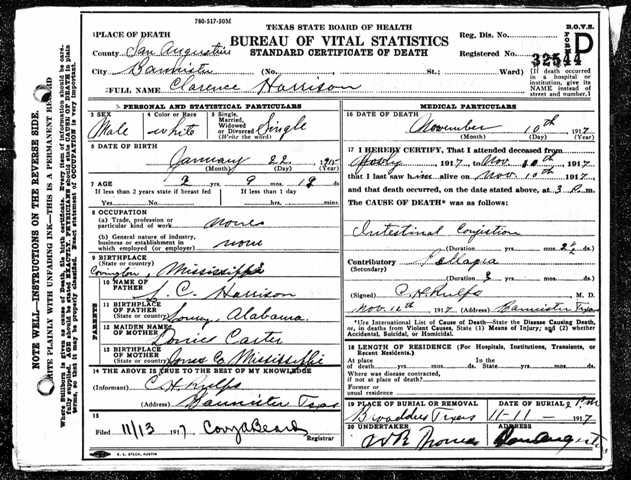 760-517-50M
TEXAS STATE BOARD OF HEALTH
BUREAU OF VITAL STATISTICS
STANDARD CERTIFICATE OF DEATH
R.O.V.S.
FORM D
Reg. Dis. No.
Registered No.
32544
[If death occurred in a hospital or institution, give its NAME instead of street and number.]
PLACE OF DEATH
County San Augustine
City Bannister (No. St.; Ward)
FULL NAME Clarence Harrison
PERSONAL AND STATISTICAL PARTICULARS
3 SEX Male
4 Color or Race white
5 Single, Married, Widowed or Divorced (Write the word) Single
6 DATE OF BIRTH
January 22
(Month) (Day) (Year)
7 AGE 2 yrs. 9 mos. 19 ds
If less than 2 years state if breast fed
Yes No
If less than 1 day
hrs. mins.
8 OCCUPATION
(a) Trade, profession or particular kind of work none
(b) General nature of industry, business or establishment in which employed (or employer) none
9 BIRTHPLACE
(State or country)
Covington, Mississippi
PARENTS
10 NAME OF FATHER
C. Harrison
11 BIRTHPLACE OF FATHER
(State or country)
Alabama
12 MAIDEN NAME OF MOTHER
Carter
13 BIRTHPLACE OF MOTHER
(State or country)
Jones Co Mississippi
14 THE ABOVE IS TRUE TO THE BEST OF MY KNOWLEDGE
(Informant) C. H. Phelps
(Address) Bannister Texas
15
Filed 11/13 1917
Registrar
MEDICAL PARTICULARS
16 DATE OF DEATH
November 10th 1917
(Month) (Day) (Year)
17 I HEREBY CERTIFY, That I attended deceased from
1917 to Nov. 10th 1917
that I last saw h alive on Nov. 10th 1917
and that death occurred, on the date stated above, at 3 P. m.
The CAUSE OF DEATH* was as follows:
Intestinal Congestion
(Duration) yrs. mos. 2½ ds.
Contributory Pellagra
(Secondary)
(Duration) 3 yrs. mos. ds.
(Signed) C. H. Phelps M. D.
Nov. 12th 1917 (Address) Bannister Texas
*Use International List of Cause of Death—State the Disease Causing Death, or, in deaths from Violent Causes, State (1) Means of Injury; and (2) whether Accidental, Suicidal, or Homicidal.
18 LENGTH OF RESIDENCE (For Hospitals, Institutions, Transients, or Recent Residents.)
At place of death yrs. mos. ds. In the State yrs. mos. ds.
Where was disease contracted, if not at place of death?
Former or usual residence
19 PLACE OF BURIAL OR REMOVAL
Broaddus Texas
DATE OF BURIAL
11-11 1917
20 UNDERTAKER
ADDRESS
San August
E. L. STECK, AUSTIN
NOTE WELL—INSTRUCTIONS ON THE REVERSE SIDE.
WRITE PLAINLY WITH UNFADING INK—THIS IS A PERMANENT RECORD